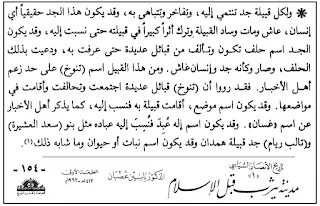 ❋ ولكل قبيلة جد تنتمي إليه، وتفاخر وتتباهى به، وقد يكون هذا الجد حقيقياً أي
إنسان، عاش ومات وساد القبيلة وترك أثراً كبيراً في قبيلته حتى نسبت إليه، وقد يكون
الجد اسم حلف تكون وتألف من قبائل عديدة حتى عرفت به، ودعيت بذلك
الحلف، وصار وكأنه جد وإنسان عاش. ومن هذا القبيل اسم (تنوخ) على حد زعم
أهل الأخبار. فقد رووا أن (تنوخ) قبائل عديدة اجتمعت وتحالفت وأقامت في
مواضعها. وقد يكون اسم موضع، أقامت قبيلة به فنسب إليه، كما يذكر أهل الأخبار
عن اسم «غسان». وقد يكون اسم إله عُبِدَ فنُسِبَ إليه عباده مثل بنو (سعد العشيرة)
و(تالب ريام) جد قبيلة همدان وقد يكون اسم نبات أو حيوان وما شابه ذلك(١).
تاريخ الأنصار السياسي
«١»
مدينة يثرب قبل الإسلام
الدكتور ياسين غضبان
الطبعة الأولى
١٤١٣هـ - ١٩٩٣م
- ١٥٤ -